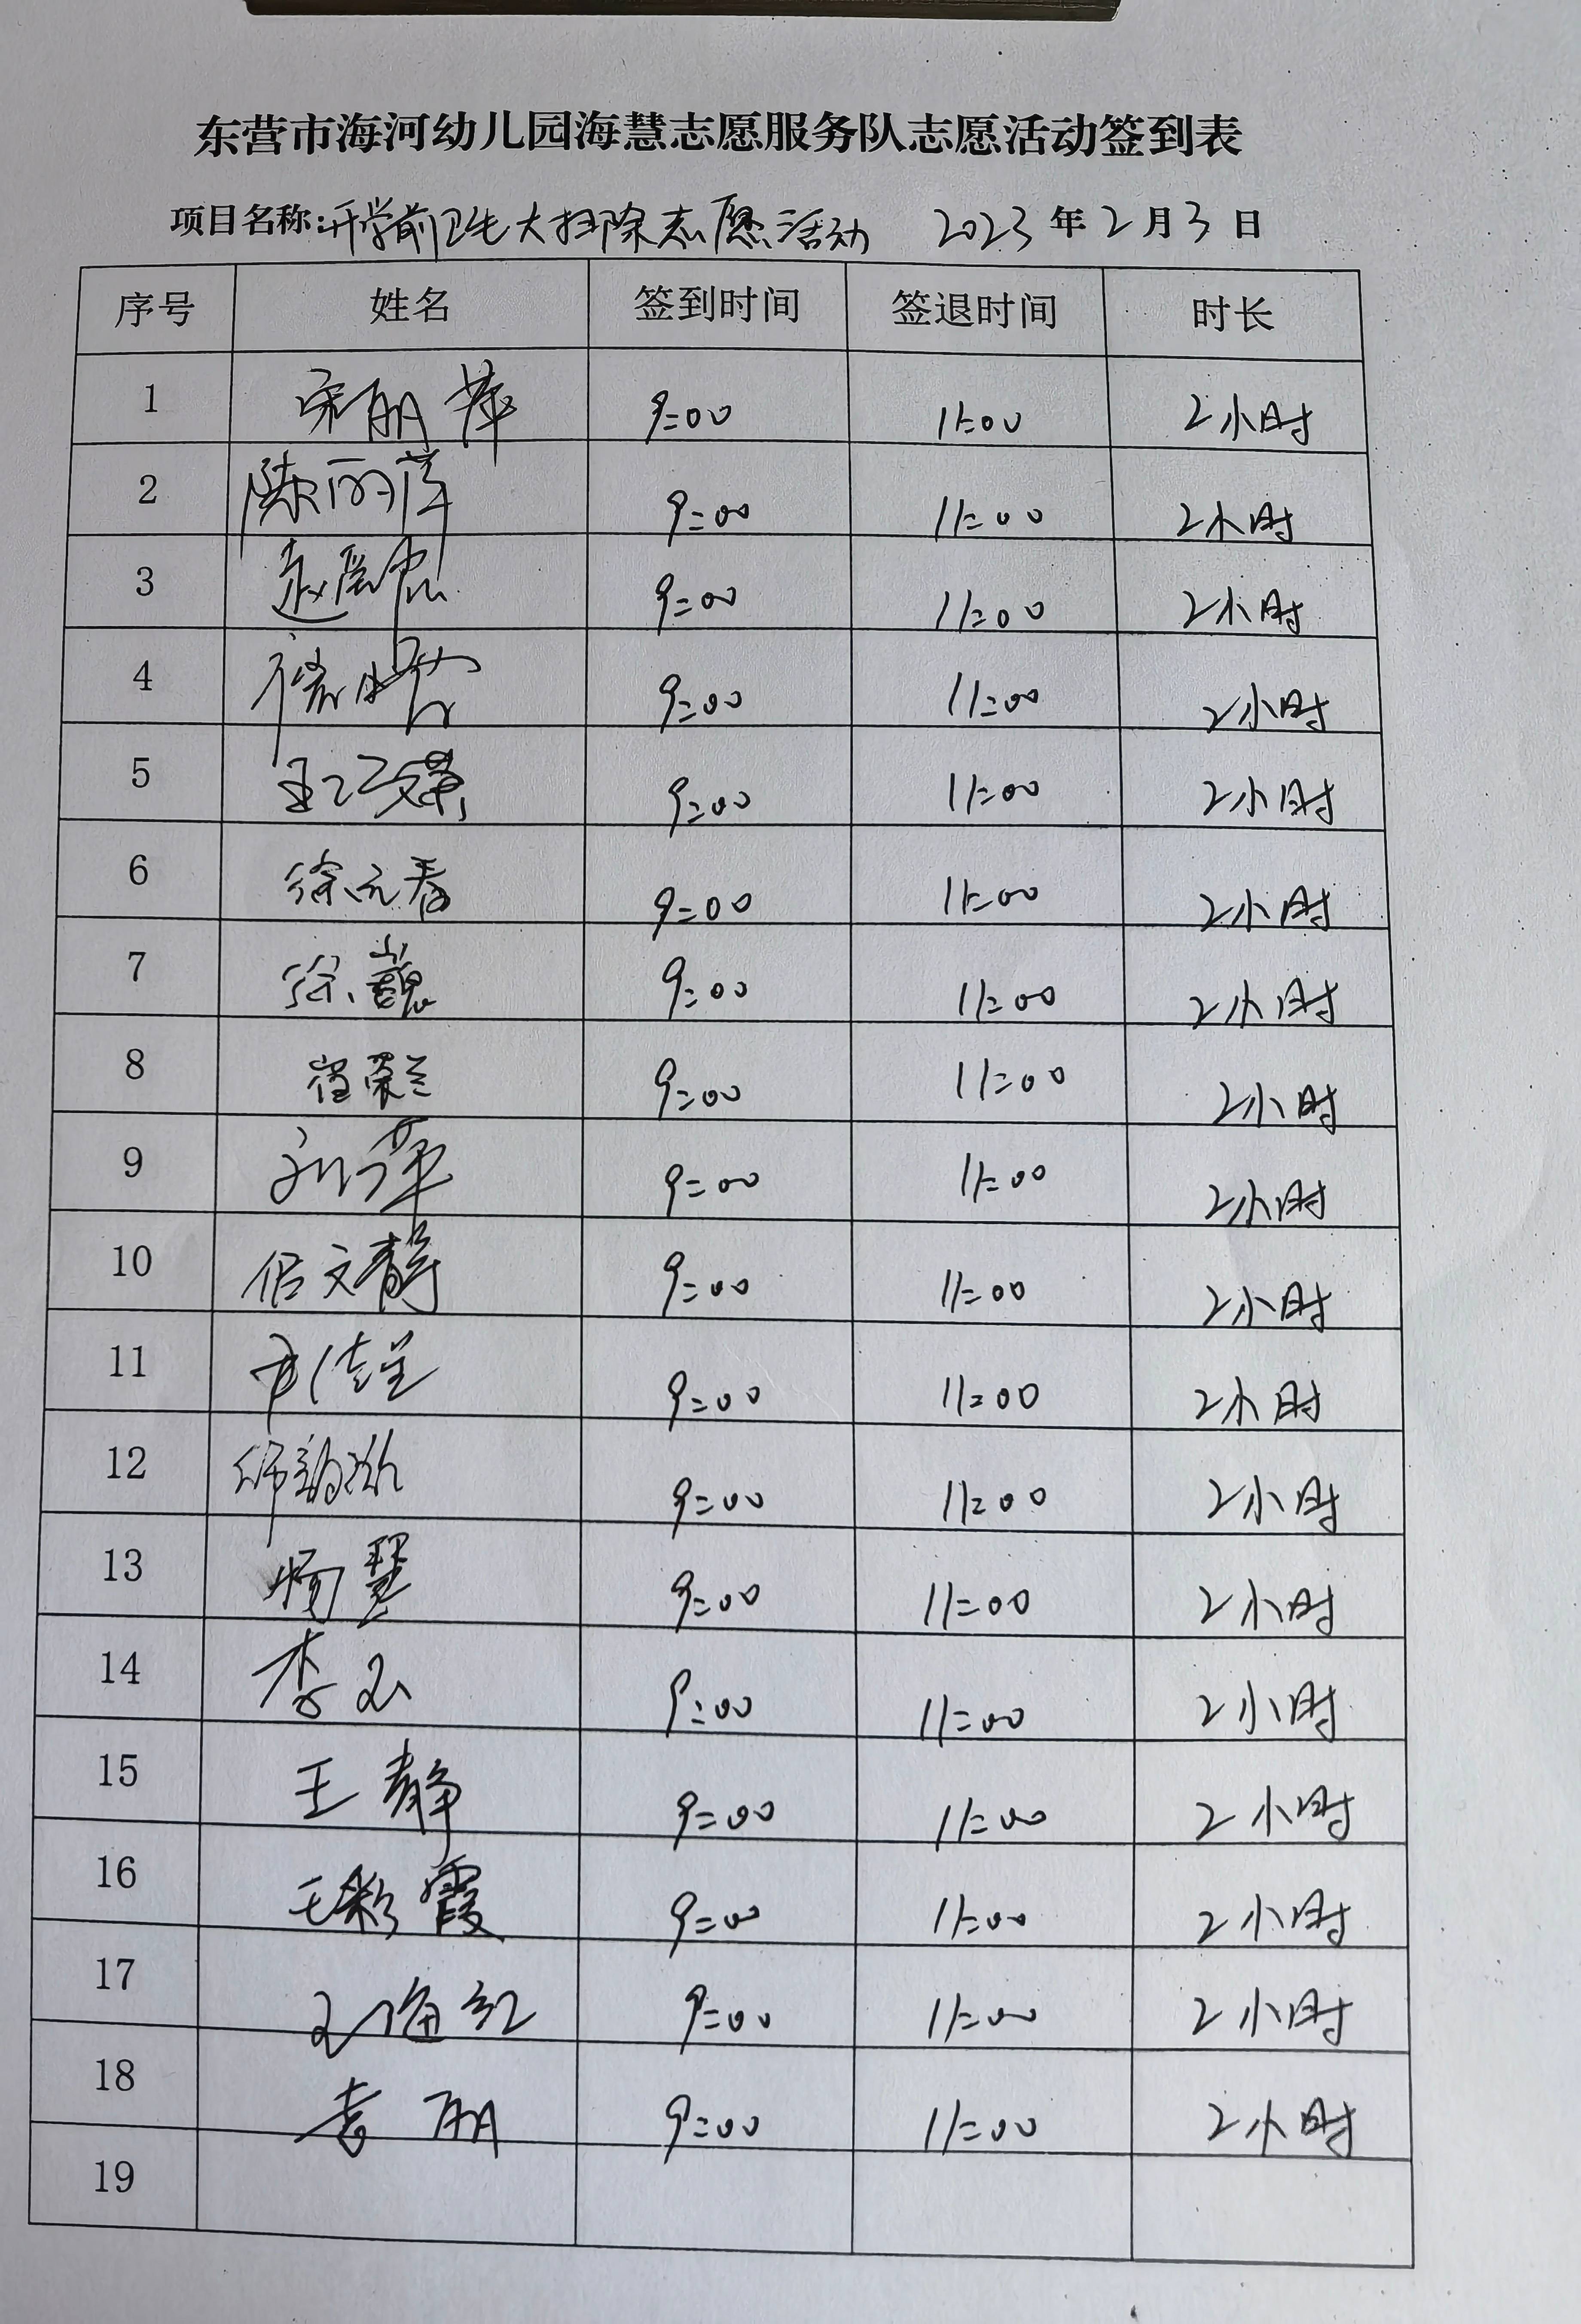 东营市海河幼儿园海慧志愿服务队志愿活动签到表
项目名称:开学前卫生大扫除志愿活动 2023年2月3日
序号 姓名 签到时间 签退时间 时长
1 宋丽萍 9:00 11:00 2小时
2 陈丽萍 9:00 11:00 2小时
3 9:00 11:00 2小时
4 9:00 11:00 2小时
5 9:00 11:00 2小时
6 徐元春 9:00 11:00 2小时
7 徐巍 9:00 11:00 2小时
8 崔荣兰 9:00 11:00 2小时
9 刘萍 9:00 11:00 2小时
10 侣文静 9:00 11:00 2小时
11 9:00 11:00 2小时
12 9:00 11:00 2小时
13 杨慧 9:00 11:00 2小时
14 李 9:00 11:00 2小时
15 王静 9:00 11:00 2小时
16 王彩霞 9:00 11:00 2小时
17 王海红 9:00 11:00 2小时
18 袁丽 9:00 11:00 2小时
19